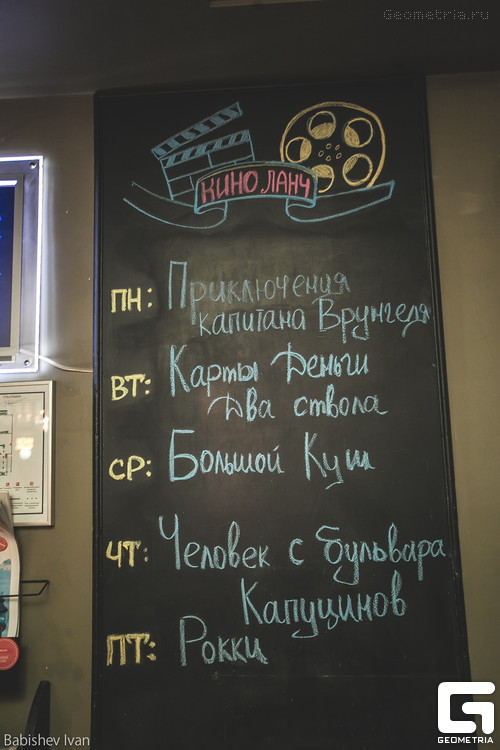 Geometria.ru
КИНО ЛАНЧ
ПН: Приключения
капитана Врунгеля
ВТ: Карты Деньги
Два ствола
СР: Большой Куш
ЧТ: Человек с бульвара
Капуцинов
ПТ: Рокки
Babishev Ivan
GEOMETRIA